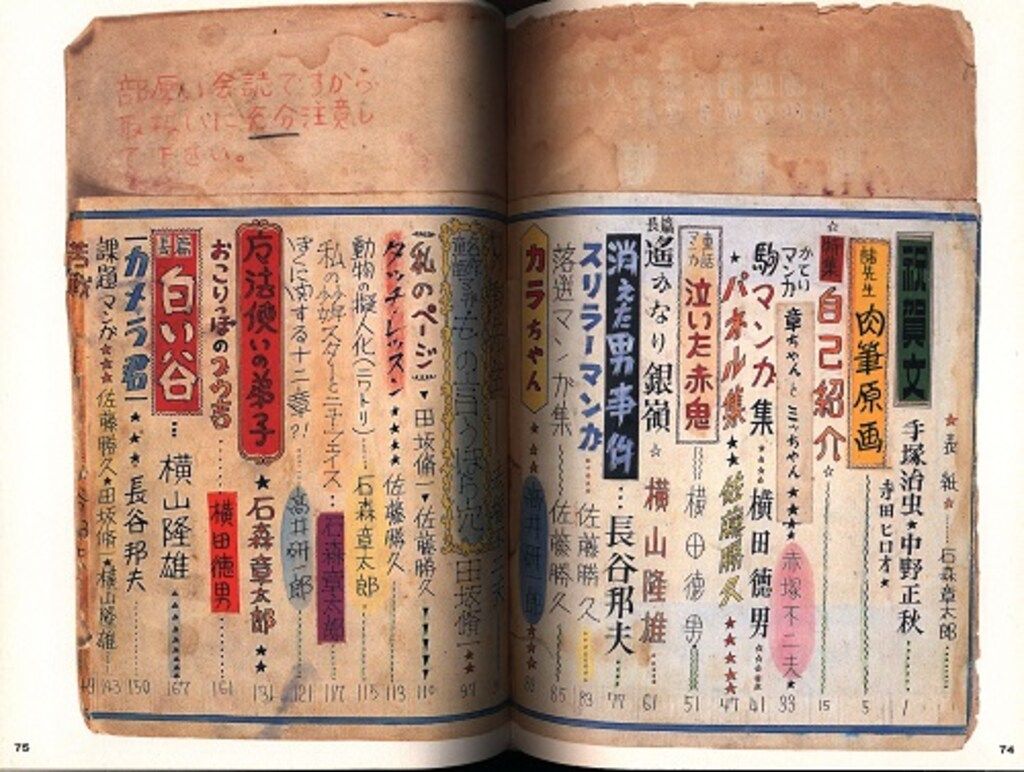 部厚い会誌ですから
取扱いに充分注意し
て下さい。
★表紙★ 石森章太郎
祝賀文 手塚治虫★中野正秋 1
寺田ヒロオ★
諸先生 肉筆原画 5
特集 自己紹介 15
かてい マンガ 章ちゃんとミッちゃん 赤塚不二夫 33
駒マンガ集 横田徳男 41
パネル集 佐藤勝久 47
童話 マンガ 泣いた赤鬼 横田徳男 51
長篇 遙かなり銀嶺 横山隆雄 61
消えた男事件 長谷邦夫 77
スリラーマンガ 佐藤勝久 83
落選マンガ集 佐藤勝久 85
カラちゃん 高井研一郎
田坂脩一 97
私のページ 田坂脩一 佐藤勝久 110
タッチ・レッスン 佐藤勝久 113
動物の擬人化(ニワトリ) 石森章太郎 115
私の少女スターとニューフェイス 石森章太郎 117
ぼくに関する十二章?! 高井研一郎 121
魔法使いの弟子 石森章太郎 131
おこりっぽの 横田徳男 161
長篇 白い谷 横山隆雄 167
カメラ君 長谷邦夫 150
課題マンガ 佐藤勝久・田坂脩一・横山隆雄 143
75
74